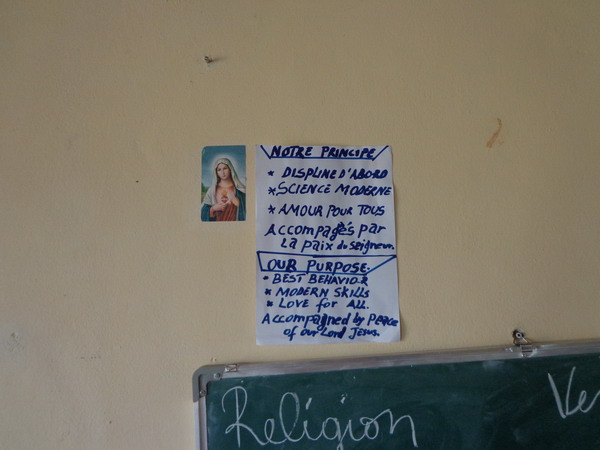 NOTRE PRINCIPE
* DISPLINE D'ABORD
* SCIENCE MODERNE
* AMOUR POUR TOUS
Accompagés par
La paix du seigneur.
OUR PURPOSE.
* BEST BEHAVIOR
* MODERN SKIllS
* LOVE for ALL.
Accompagned by PEACE
of our Lord Jesus.
Religion Ve